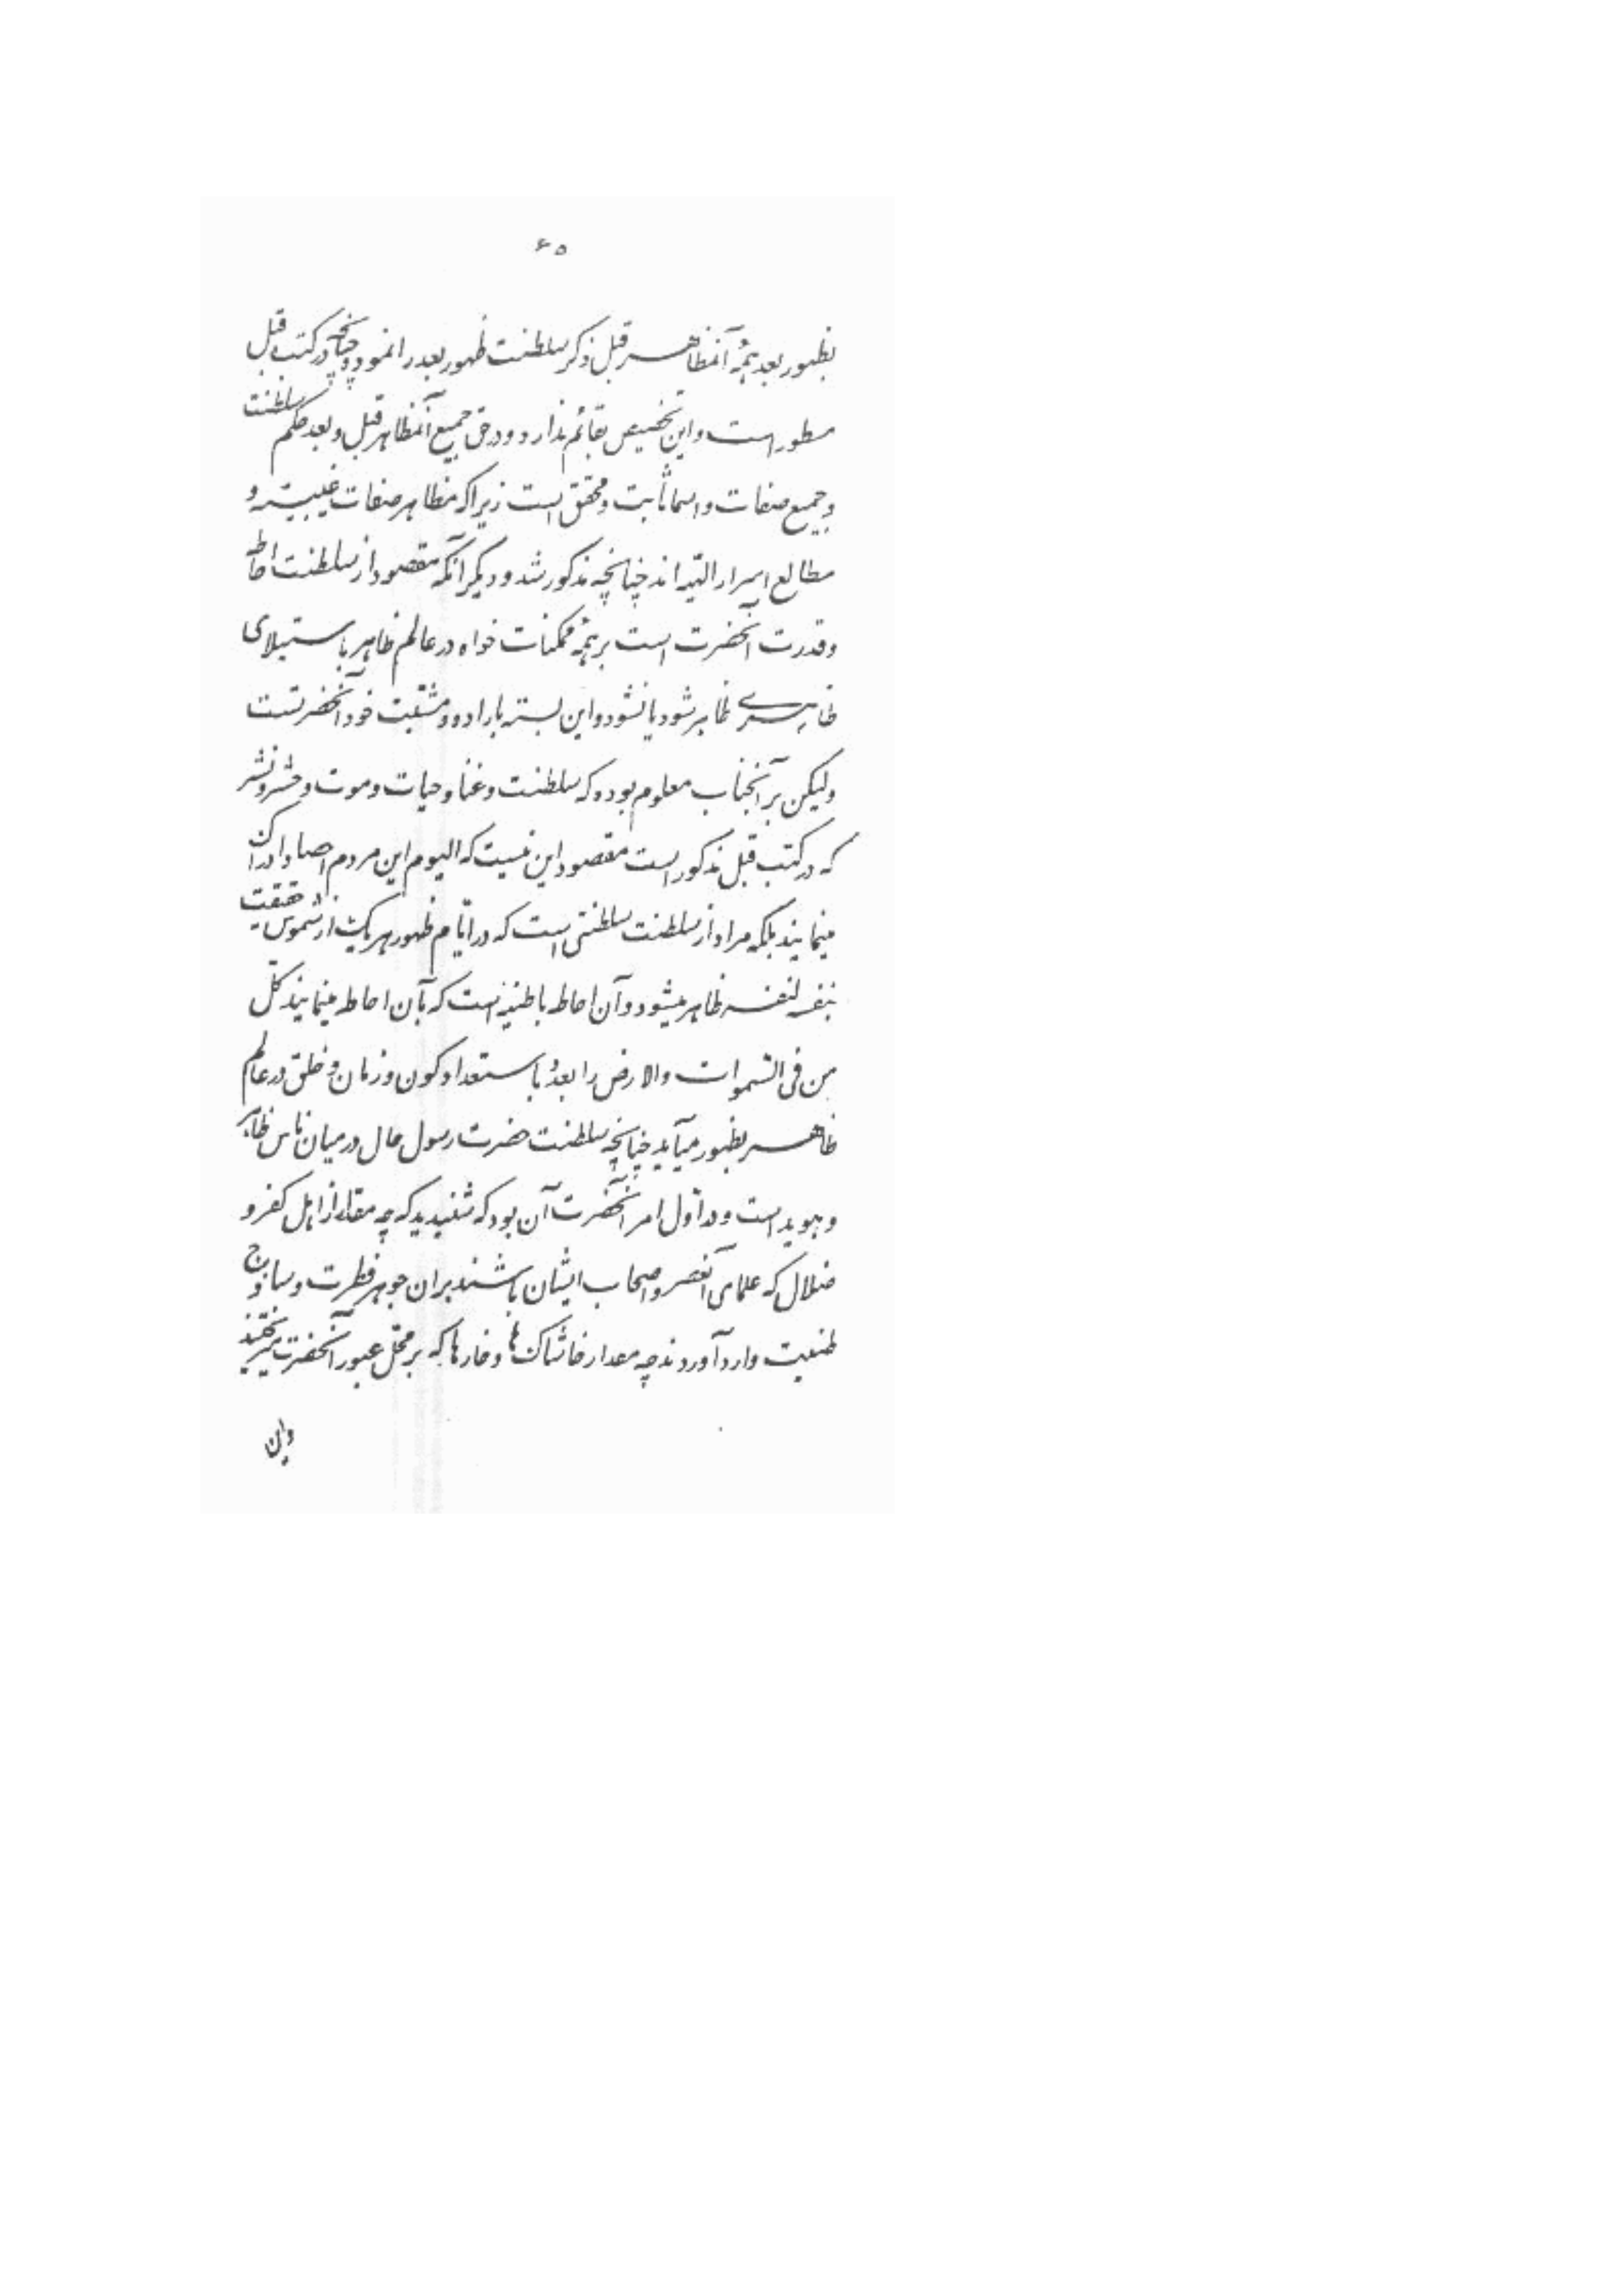 ۶۵
بظهور بعد همهٔ آنمظاهر قبل ذکر سلطنت ظهور بعد را نمودند چنانچه در کتب قبل
مسطور است و این تخصیص بقائم ندارد و در حق جمیع آنمظاهر قبل و بعد حکم سلطنت
و جمیع صفات و اسما ثابت و محقق است زیرا که مظاهر صفات غیبیّه و
مطالع اسرار الهیّه‌اند چنانچه مذکور شد و دیگر آنکه مقصود از سلطنت احاطه
و قدرت آنحضرت است بر همهٔ ممکنات خواه در عالم ظاهر باستیلای
ظاهری ظاهر شود یا نشود و این بسته باراده و مشیّت خود آنحضرتست
ولیکن بر آنجناب معلوم بوده که سلطنت و غنا و حیات و موت و حشر و نشر
که در کتب قبل مذکور است مقصود این نیست که الیوم این مردم احصا و ادراک
مینمایند بلکه مراد از سلطنت سلطنتی است که در ایّام ظهور هر یک از شموس حقیقت
بنفسه لنفسه ظاهر میشود و آن احاطه باطنیّه است که بآن احاطه مینمایند کلّ
من فی السّموات والارض را و بعد باستعداد کون و زمان و خلق در عالم
ظاهر بظهور میآید چنانچه سلطنت حضرت رسول حال در میان ناس ظاهر
و هویدا است و در اوّل امر آنحضرت آن بود که شنیدید که چه مقدار از اهل کفر و
ضلال که علمای آنعصر و اصحاب ایشان باشند بر آن جوهر فطرت و ساذج
طینت وارد آوردند چه مقدار خاشاک‌ها و خارها که بر محلّ عبور آنحضرت میریختند
و این